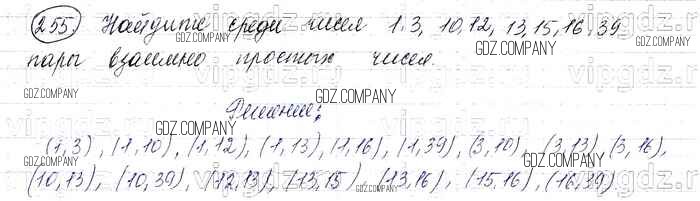 255. Найдите среди чисел 1, 3, 10, 12, 13, 15, 16, 39
GDZ.COMPANY
пары взаимно простых чисел.
GDZ.COMPANY
Решение:
(1,3), (1,10), (1,12), (1,13), (1,16), (1,39), (3,10), (3,13), (3,16),
(10,13), (10,39), (12,13), (13,15), (13,16), (15,16), (16,39).
GDZ.COMPANY
vipgdz.ru